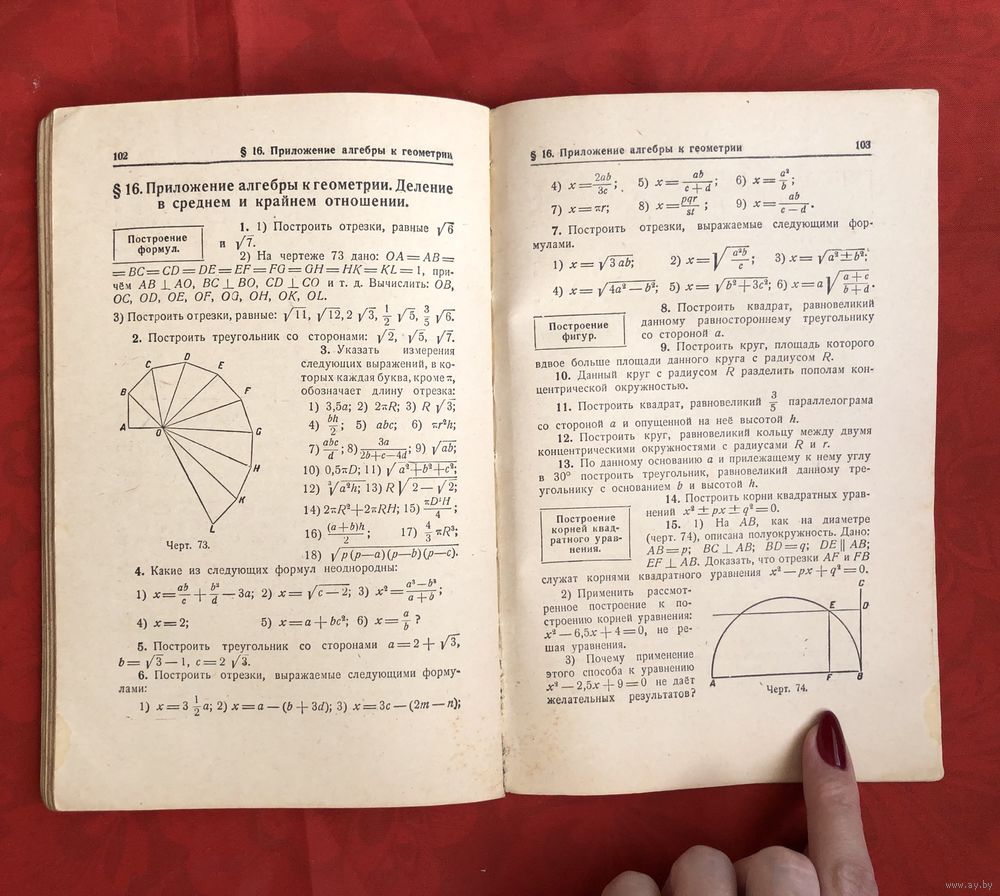 102
§ 16. Приложение алгебры к геометрии
§ 16. Приложение алгебры к геометрии. Деление
в среднем и крайнем отношении.
Построение
формул.
1. 1) Построить отрезки, равные √6
и √7.
2) На чертеже 73 дано: OA = AB =
= BC = CD = DE = EF = FG = GH = HK = KL = 1, при-
чём AB ⊥ AO, BC ⊥ BO, CD ⊥ CO и т. д. Вычислить: OB,
OC, OD, OE, OF, OG, OH, OK, OL.
3) Построить отрезки, равные: √11, √12, 2 √3, 1/2 √5, 3/5 √6.
2. Построить треугольник со сторонами: √2, √5, √7.
3. Указать измерения
следующих выражений, в ко-
торых каждая буква, кроме π,
обозначает длину отрезка:
1) 3,5a; 2) 2πR; 3) R √3;
4) bh/2; 5) abc; 6) πr²h;
7) abc/d; 8) 3a/(2b+c−4d); 9) √ab;
10) 0,5πD; 11) √(a²+b²+c²);
12) ∛(a²h); 13) R √(2 − √2);
14) 2πR²+2πRH; 15) πD²H/4;
16) (a+b)h/2; 17) 4/3 πR³;
18) √(p(p−a)(p−b)(p−c)).
A
B
C
D
E
F
G
H
K
L
O
Черт. 73.
4. Какие из следующих формул неоднородны:
1) x = ab/c + b²/d − 3a; 2) x = √(c − 2); 3) x² = (a³−b³)/(a+b);
4) x = 2; 5) x = a + bc²; 6) x = a/b ?
5. Построить треугольник со сторонами a = 2 + √3,
b = √3 − 1, c = 2 √3.
6. Построить отрезки, выражаемые следующими форму-
лами:
1) x = 3 1/2 a; 2) x = a − (b + 3d); 3) x = 3c − (2m − n);
§ 16. Приложение алгебры к геометрии
103
4) x = 2ab/3c; 5) x = ab/(c+d); 6) x = a²/b;
7) x = πr; 8) x = pqr/st; 9) x = ab/(c−d).
7. Построить отрезки, выражаемые следующими фор-
мулами.
1) x = √(3ab); 2) x = √(a²b/c); 3) x = √(a² ± b²);
4) x = √(4a² − b²); 5) x = √(b² + 3c²); 6) x = a √((a+c)/(b+d)).
Построение
фигур.
8. Построить квадрат, равновеликий
данному равностороннему треугольнику
со стороной a.
9. Построить круг, площадь которого
вдвое больше площади данного круга с радиусом R.
10. Данный круг с радиусом R разделить пополам кон-
центрической окружностью.
11. Построить квадрат, равновеликий 3/5 параллелограма
со стороной a и опущенной на неё высотой h.
12. Построить круг, равновеликий кольцу между двумя
концентрическими окружностями с радиусами R и r.
13. По данному основанию a и прилежащему к нему углу
в 30° построить треугольник, равновеликий данному тре-
угольнику с основанием b и высотой h.
Построение
корней квад-
ратного урав-
нения.
14. Построить корни квадратных урав-
нений x² ± px ± q² = 0.
15. 1) На AB, как на диаметре
(черт. 74), описана полуокружность. Дано:
AB = p; BC ⊥ AB; BD = q; DE ∥ AB;
EF ⊥ AB. Доказать, что отрезки AF и FB
служат корнями квадратного уравнения x² − px + q² = 0.
2) Применить рассмот-
ренное построение к по-
строению корней уравнения:
x² − 6,5x + 4 = 0, не ре-
шая уравнения.
3) Почему применение
этого способа к уравнению
x² − 2,5x + 9 = 0 не даёт
желательных результатов?
C
E
D
A
F
B
Черт. 74.
www.ay.by